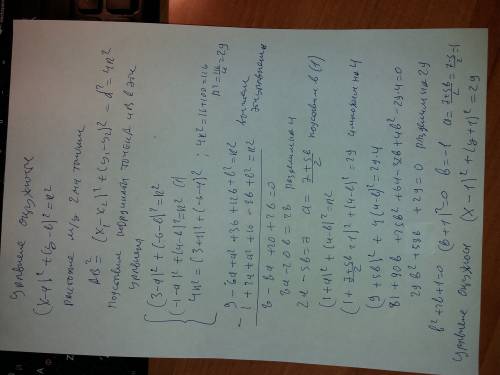 Уравнение окружности
(x-a)² + (y-b)² = R²
расстояние м/у 2мя точками
AB² = (x₁-x₂)² + (y₁-y₂)² = d² = 4R²
Подставим координаты точек A и B в эти
уравнения
(3-a)² + (-6-b)² = R²
(-1-a)² + (4-b)² = R² (1)
4R² = (3+1)² + (-6-4)² ; 4R² = 16+100 = 116
R² = 116/4 = 29
9 - 6a + a² + 36 + 12b + b² = R² вычтем
1 + 2a + a² + 16 - 8b + b² = R²
8 - 8a + 20 + 20b = 0
8a - 20b = 28 разделим на 4
2a - 5b = 7 a = (7+5b)/2 подставим в (1)
(1+a)² + (4-b)² = R²
(1 + (7+5b)/2)² + (4-b)² = 29 умножим на 4
(9+5b)² + 4(4-b)² = 29·4
81 + 90b + 25b² + 64 - 32b + 4b² - 29·4 = 0
29b² + 58b + 29 = 0 разделим на 29
b² + 2b + 1 = 0 (b+1)² = 0 b = -1 a = (7+5b)/2 = (7-5)/2 = 1
Уравнение окружности (x-1)² + (y+1)² = 29